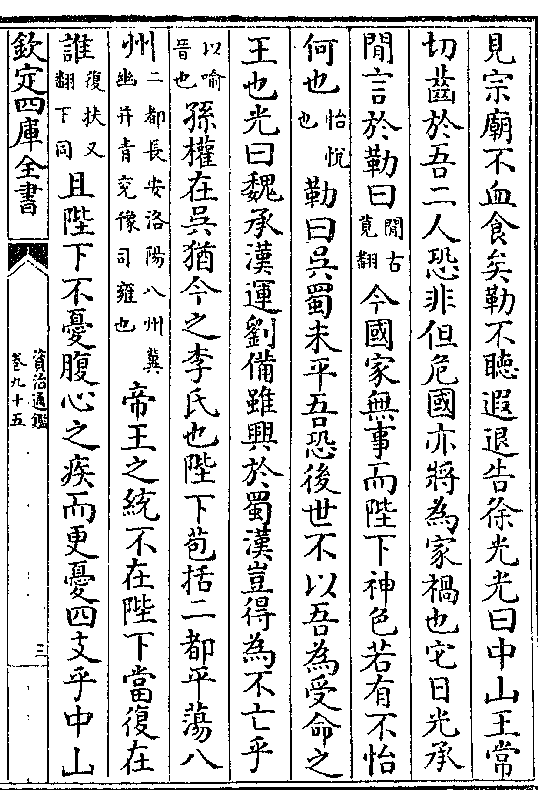 見宗廟不血食矣勒不聽遐退告徐光光曰中山王常
切齒於吾二人恐非但危國亦將為家禍也它日光承
閒言於勒曰閒古莧翻今國家無事而陛下神色若有不怡
何也怡悅也勒曰吳蜀未平吾恐後世不以吾為受命之
王也光曰魏承漢運劉備雖興於蜀漢豈得為不亡乎
以喻晉也孫權在吳猶今之李氏也陛下苞括二都平蕩八
州二都長安洛陽八州冀幽并青兗豫司雍也帝王之統不在陛下當復在
誰復扶又翻下同且陛下不憂腹心之疾而更憂四支乎中山
欽定四庫全書
資治通鑑
卷九十五
三